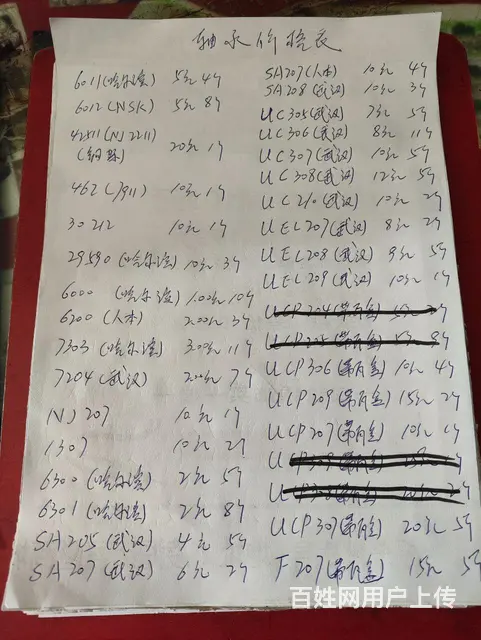 轴承价格表
6011(哈尔滨) 5元 4个
6012(NSK) 5元 8个
42511(NJ2211)
(铜殊) 20元 1个
462(/911) 10元 1个
30212 10元 1个
29590(哈尔滨) 10元 3个
6000 (哈尔滨) 1.00元 10个
6200 (人本) 2.00元 3个
7303(哈尔滨) 3.00元 11个
7204(武汉) 2.00元 7个
NJ207 10元 1个
1307 10元 2个
6300(哈尔滨) 2元 5个
6301(哈尔滨) 2元 8个
SA205(武汉) 4元 5个
SA207(武汉) 6元 2个
SA207(人本) 10元 4个
SA208(武汉) 10元 3个
UC305(武汉) 7元 5个
UC306(武汉) 8元 11个
UC307(武汉) 10元 5个
UC308(武汉) 12元 5个
UC210(武汉) 10元 2个
UEL207(武汉) 8元 2个
UEL208(武汉) 9元 5个
UEL209(武汉) 10元 1个
UCP204
UCP205
UCP306(带有盒) 10元 4个
UCP209(带有盒) 15元 2个
UCP207(带有盒) 10元 1个
UCP307(带有盒) 20元 5个
F207(带有盒) 15元 5个
百姓网用户上传